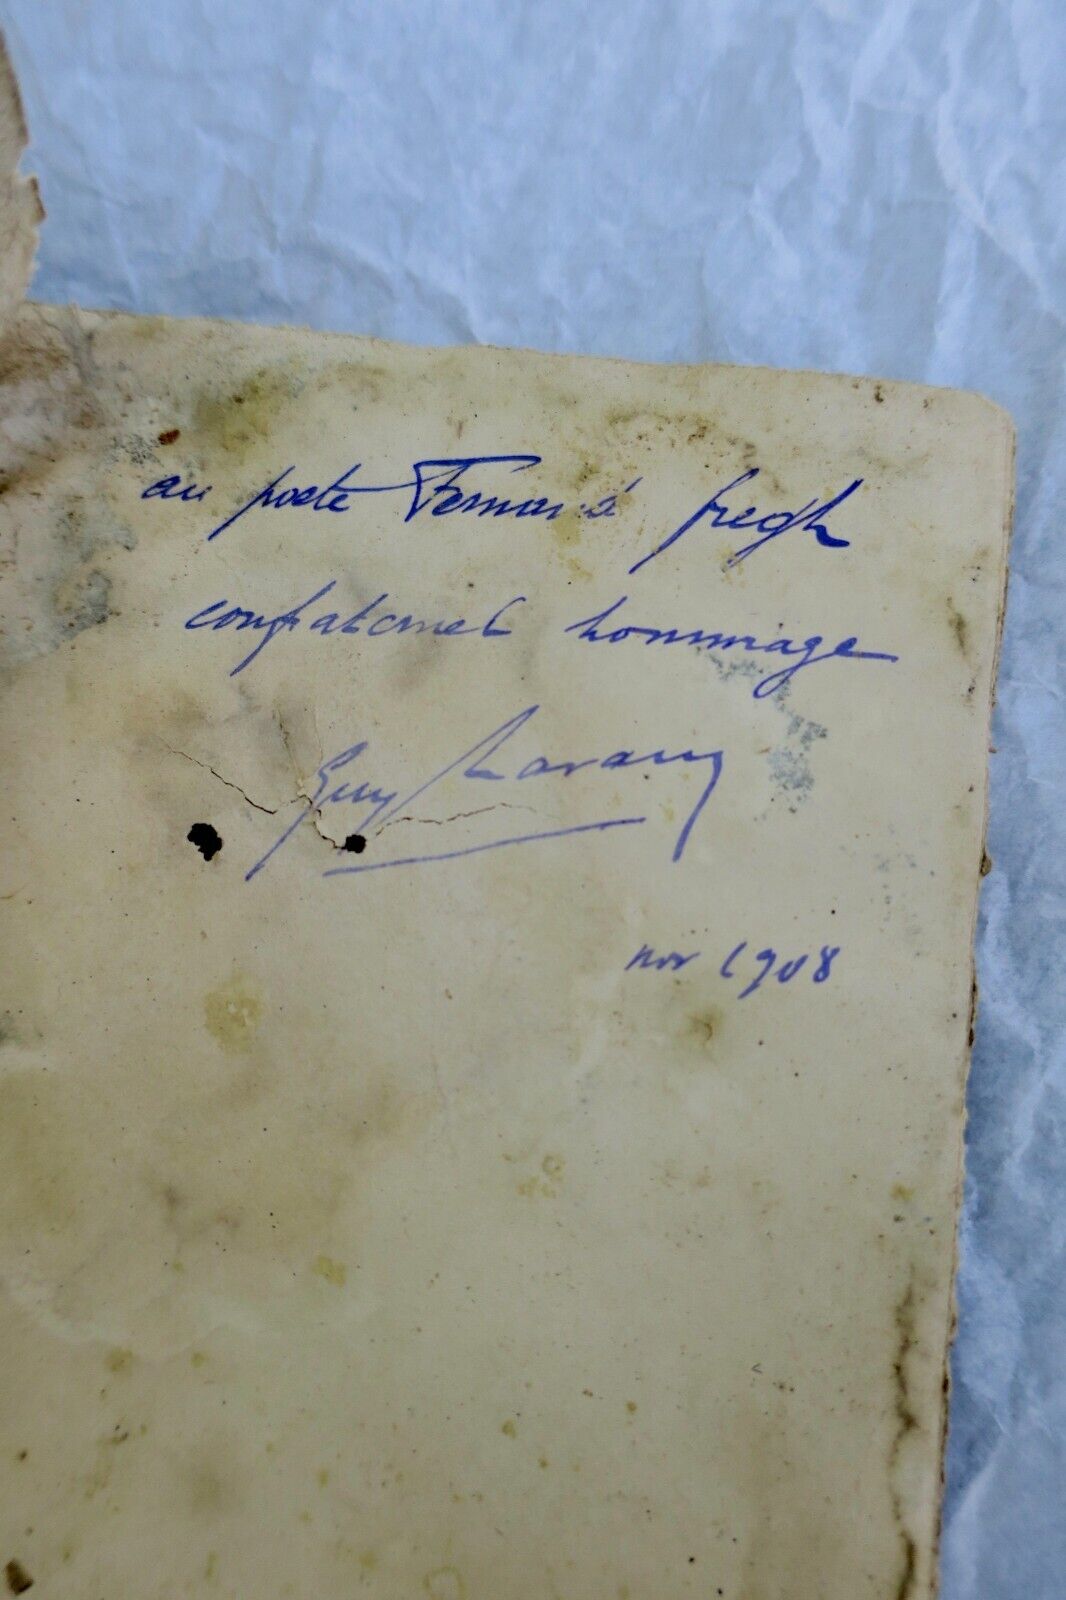 au poete Fernand Gregh
confraternel hommage
Guy Lavaud
nov 1908